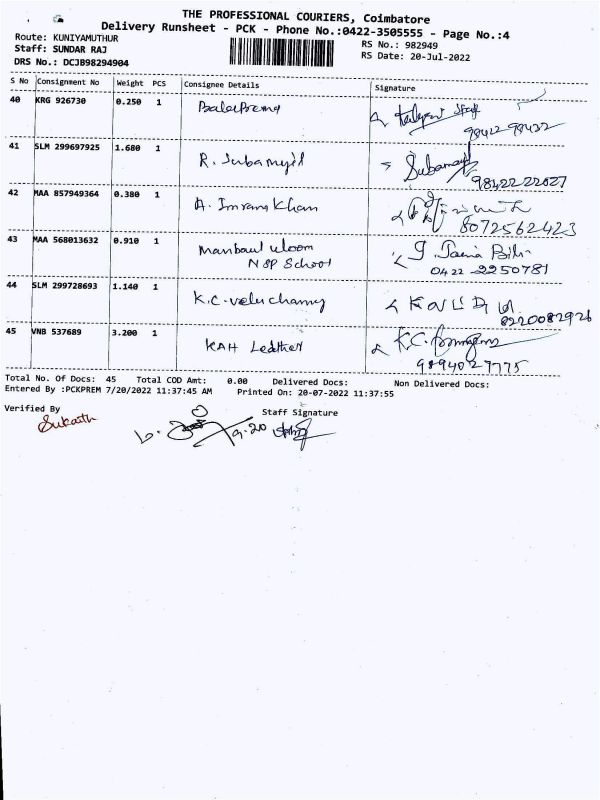 THE PROFESSIONAL COURIERS, Coimbatore
Delivery Runsheet - PCK - Phone No.:0422-3505555 - Page No.:4
Route: KUNIYAMUTHUR RS No.: 982949
Staff: SUNDAR RAJ RS Date: 20-Jul-2022
DRS No.: DCJB98294904
S No Consignment No Weight PCS Consignee Details Signature
40 KRG 926730 0.250 1 BalaPrema
98422 98422
41 SLM 299697925 1.680 1 R. Subamyil
98422 22027
42 MAA 857949364 0.380 1 A. Imran Khan
8072562423
43 MAA 568013632 0.910 1 Manbaul uloom
NSP School
0422 2250781
44 SLM 299728693 1.140 1 K.C. veluchamy
8220082926
45 VNB 537689 3.200 1 KAH Leather
9894027775
Total No. Of Docs: 45 Total COD Amt: 0.00 Delivered Docs: Non Delivered Docs:
Entered By :PCKPREM 7/20/2022 11:37:45 AM Printed On: 20-07-2022 11:37:55
Verified By Staff Signature
9.20